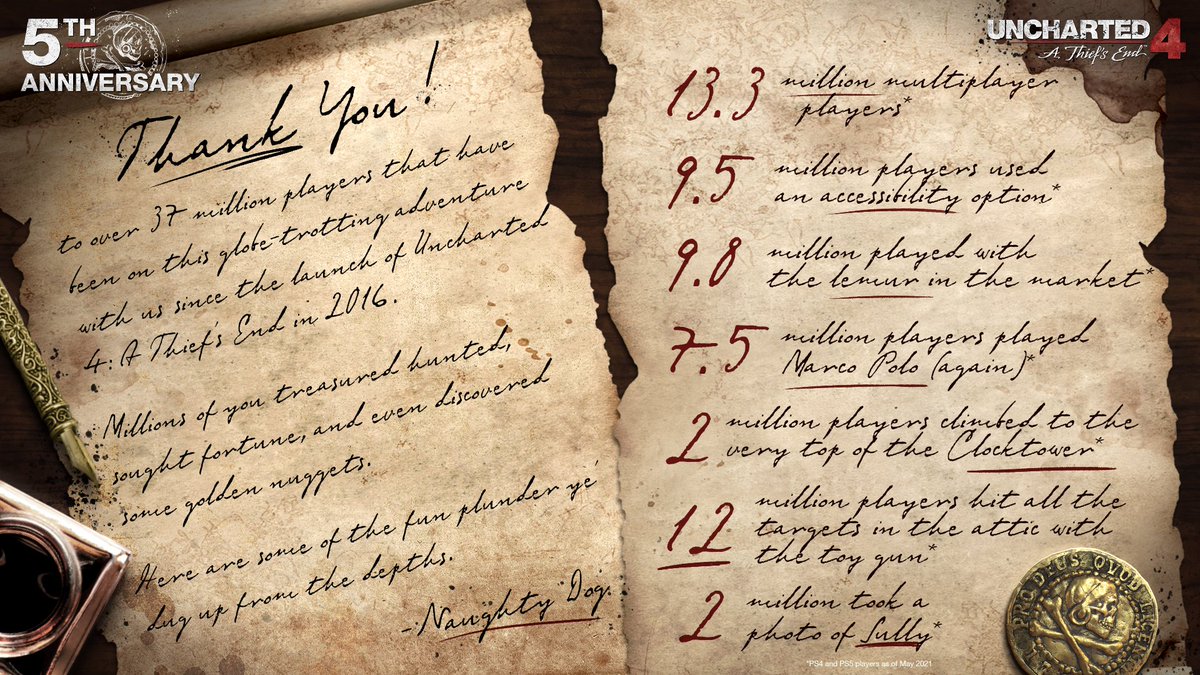 5TH
ANNIVERSARY
Thank You!
to over 37 million players that have
been on this globe-trotting adventure
with us since the launch of Uncharted
4: A Thief's End in 2016.
Millions of you treasured hunted,
sought fortune, and even discovered
some golden nuggets.
Here are some of the fun plunder ye'
dug up from the depths.
-Naughty Dog.
UNCHARTED 4
A Thief's End™
13.3 million multiplayer
players*
9.5 million players used
an accessibility option*
9.8 million played with
the lemur in the market*
7.5 million players played
Marco Polo (again)*
2 million players climbed to the
very top of the Clocktower*
12 million players hit all the
targets in the attic with
the toy gun*
2 million took a
photo of Sully*
*PS4 and PS5 players as of May 2021
PRO DEUS QUOD LICENTIA